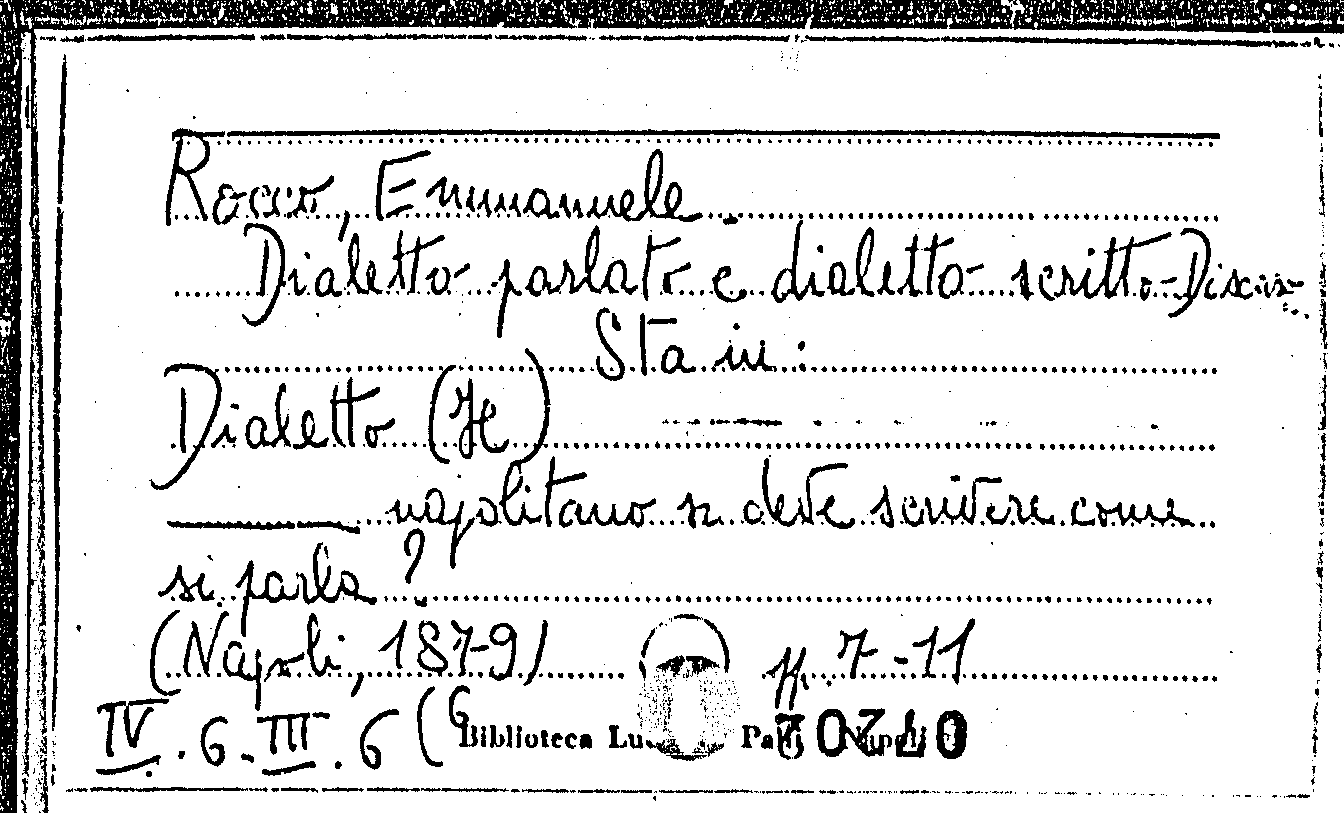 Rocco, Emmanuele.
Dialetto parlato e dialetto scritto - Discus-
Sta in:
Dialetto (Il)
napolitano si deve scrivere come
si parla?
(Napoli, 1879) pp. 7-11
IV. 6. III. 6 (6
Biblioteca Napoli